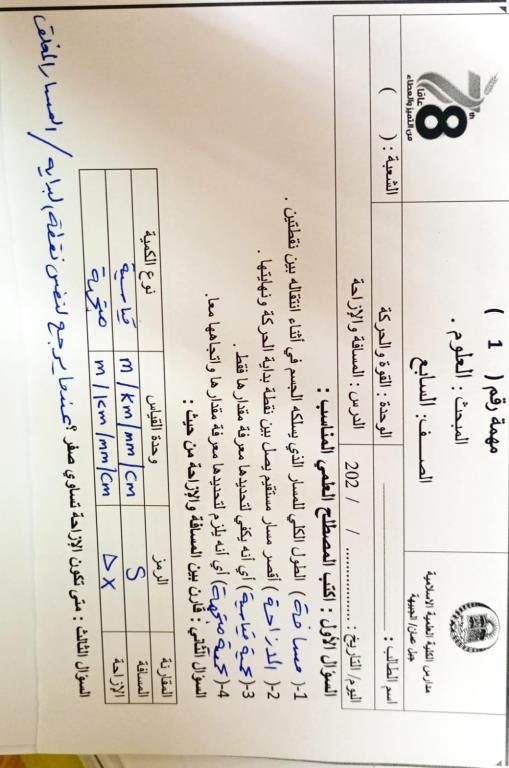 مدارس الكلية العلمية الاسلامية
جبل عمان/ الجبيهة
مهمة رقم ( 1 )
المبحث : العلوم .
الصـــف: السابع
78th
عامًا
من التميز والعطاء
اسم الطالب :
الوحدة : القوة والحركة
الشعبة : ( )
اليوم/ التاريخ : .................. / / 202
الدرس : المسافة والإزاحة
السؤال الأول : اكتب المصطلح العلمي المناسب :
1-( مسافة ) الطول الكلي للمسار الذي يسلكه الجسم في أثناء انتقاله بين نقطتين .
2-( الازاحة ) أقصر مسار مستقيم يصل بين نقطة بداية الحركة ونهايتها .
3-( كمية قياسية ) أي أنه يكفي لتحديدها معرفة مقدارها فقط .
4-( كمية متجهة ) أي أنه يلزم لتحديدها معرفة مقدارها واتجاهها معا.
السؤال الثاني : قارن بين المسافة والإزاحة من حيث :
المقارنة الرمز وحدة القياس نوع الكمية
المسافة S m/km/mm/cm قياسية
الإزاحة Δx m/km/mm/cm متجهة
السؤال الثالث : متى تكون الإزاحة تساوي صفر ؟ عندما يرجع لنفس نقطة البداية / المسار المغلق